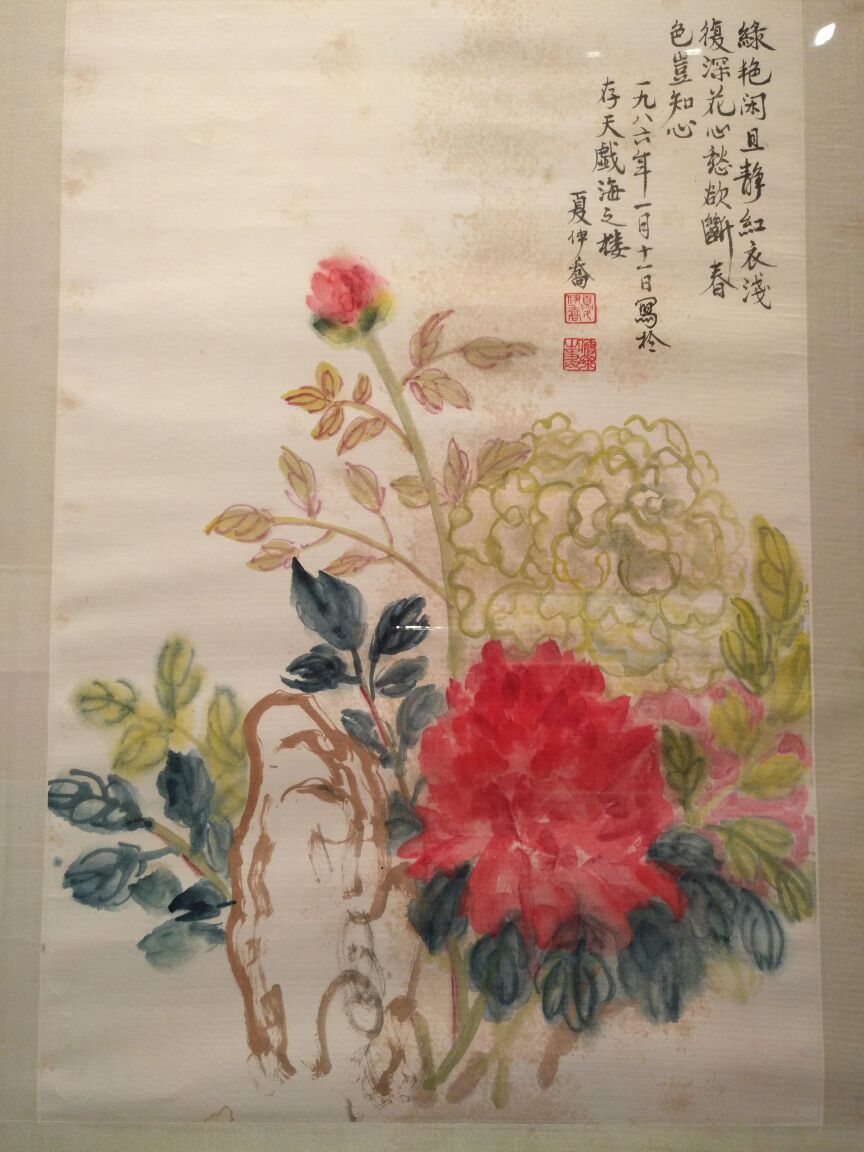 綠艳闲且靜紅衣淺
復深花心愁欲斷春
色豈知心
一九八六年一月十一日寫於
存天戲海之楼
夏伊喬